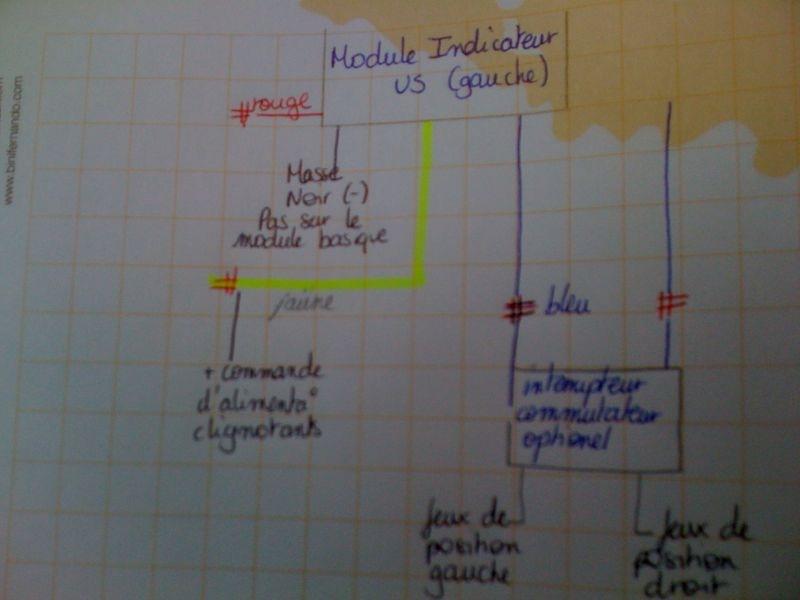 Module Indicateur
US (gauche)
rouge
Masse
Noir (-)
Pas sur le
module basique
jaüne
+ commande
d'alimentat°
clignotants
bleu
interrupteur
commutateur
optionel
feux de
position
gauche
feux de
position
droit
www.binifernando.com